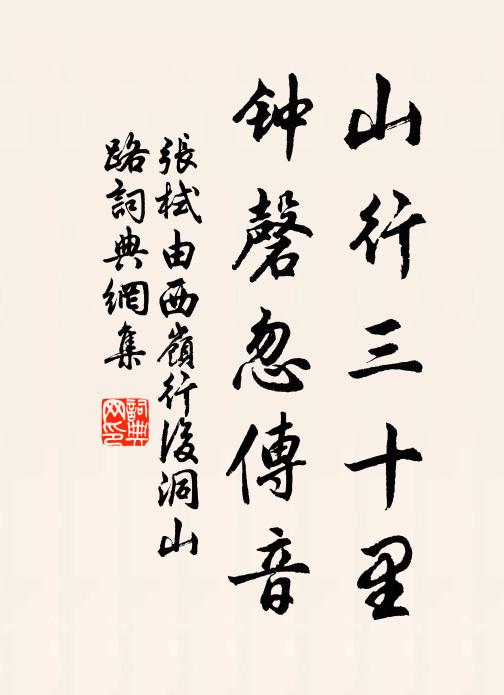 山行三十里
钟磬忽傳音
張栻由西嶺行後洞山
路詞典網集
詞典网印